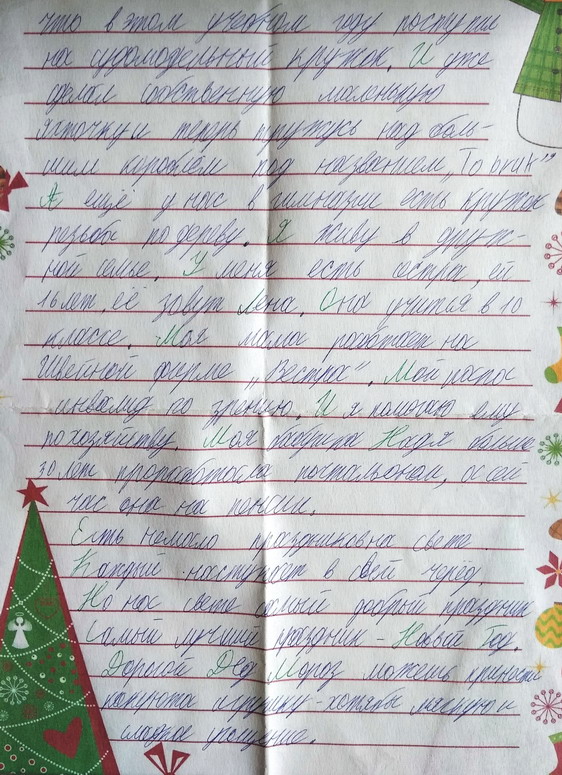 что в этом учебном году поступил
на судомодельный кружок. И уже
сделал собственную маленькую
яхточку и теперь тружусь над боль-
шим кораблём под названием „To brик"
А ещё у нас в гимназии есть кружок
резьбы по дереву. Я живу в друж-
ной семье. У меня есть сестра, ей
16 лет, её зовут Лена. Она учится в 10
классе. Моя мама работает на
Швейной фирме „Вестра". Мой папа
инвалид по зрению. И я помогаю ему
по хозяйству. Моя бабушка Надя больше
30 лет проработала почтальоном, а сей
час она на пенсии.
Есть немало праздников на свете.
Каждый наступает в свой черёд.
Но на свете самый добрый праздник
Самый лучший праздник - Новый Год.
Дорогой Дед Мороз можешь принести
какую-то игрушку - хотябы мягкую и
сладкое угощение.